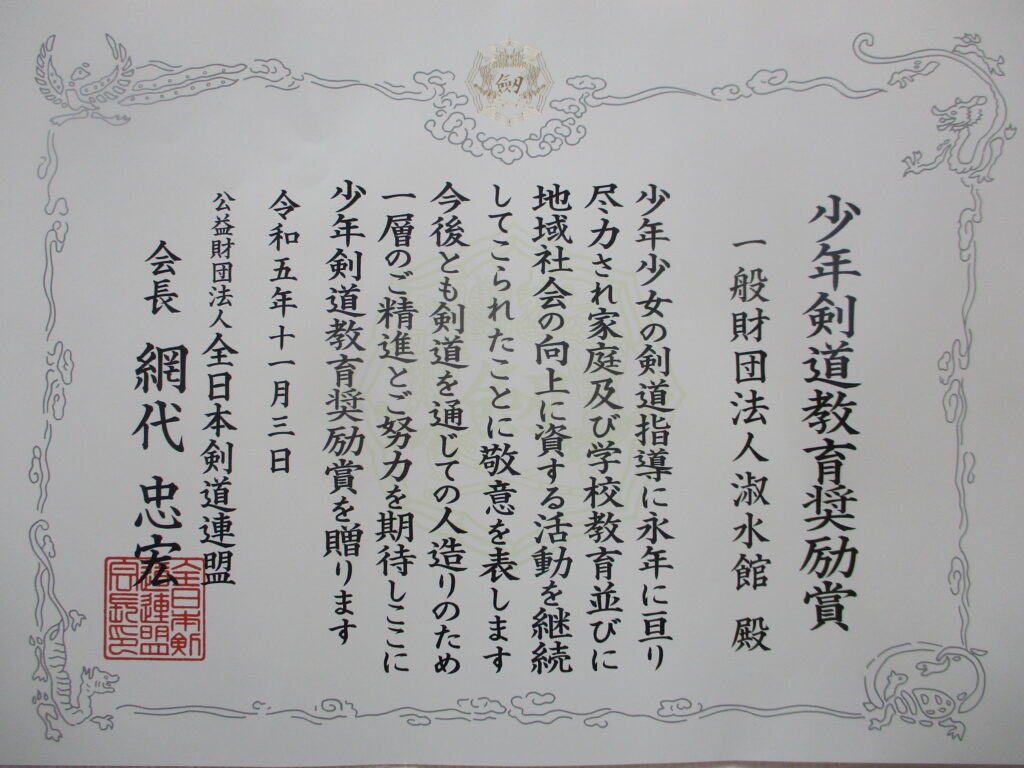 少年剣道教育奨励賞
一般財団法人淑水館 殿
少年少女の剣道指導に永年に亘り
尽力され家庭及び学校教育並びに
地域社会の向上に資する活動を継続
してこられたことに敬意を表します
今後とも剣道を通じての人造りのため
一層のご精進とご努力を期待しここに
少年剣道教育奨励賞を贈ります
令和五年十一月三日
公益財団法人全日本剣道連盟
会長 網代 忠宏
全日本剣
道連盟
会長之印